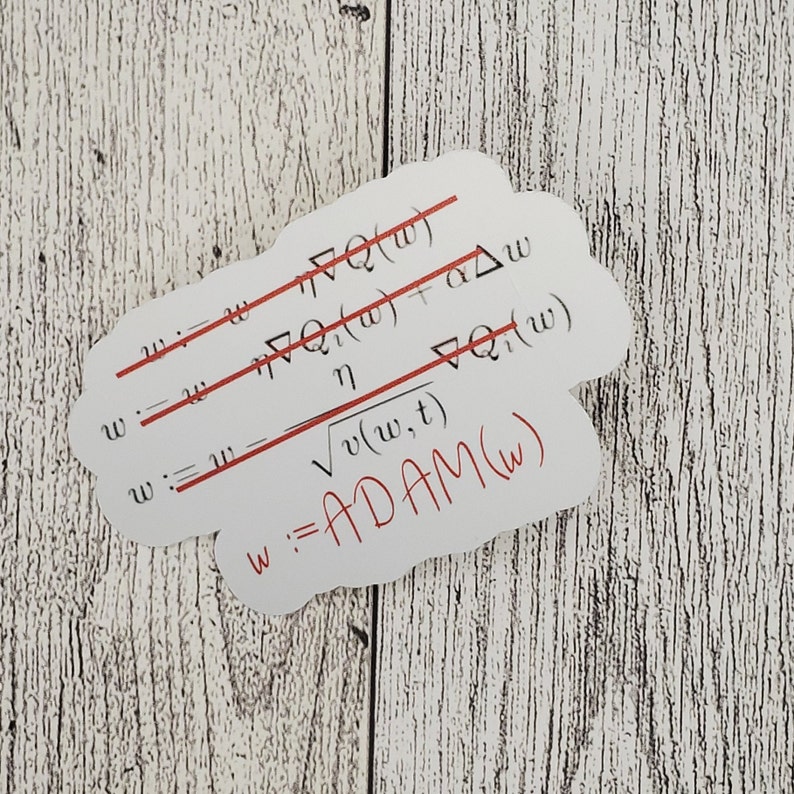 w := w − η∇Q(w)
w := w − η∇Qᵢ(w) + αΔw
w := w − η/√v(w,t) ∇Qᵢ(w)
w := ADAM(w)